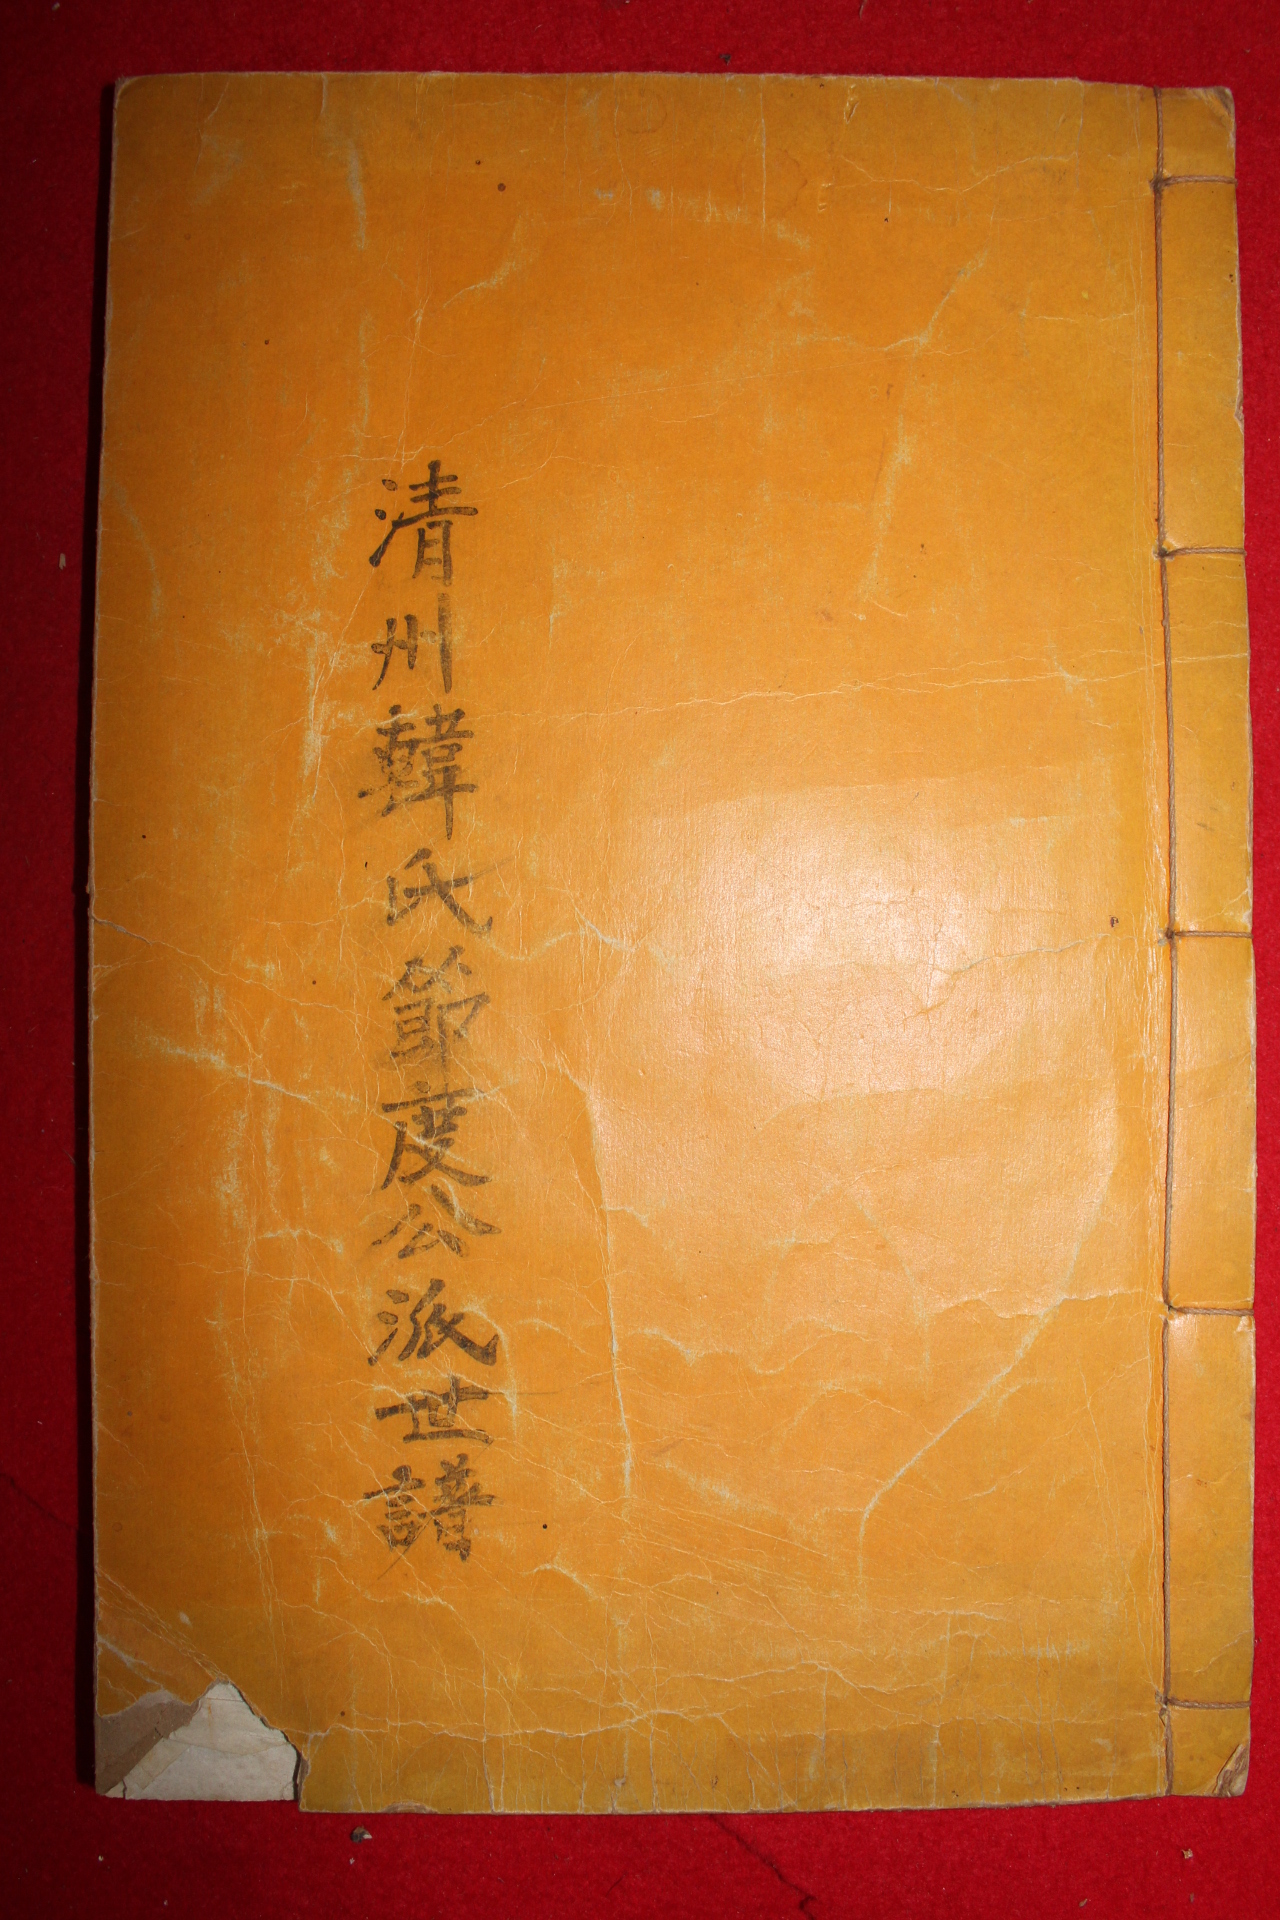 清州韓氏節度公派世譜